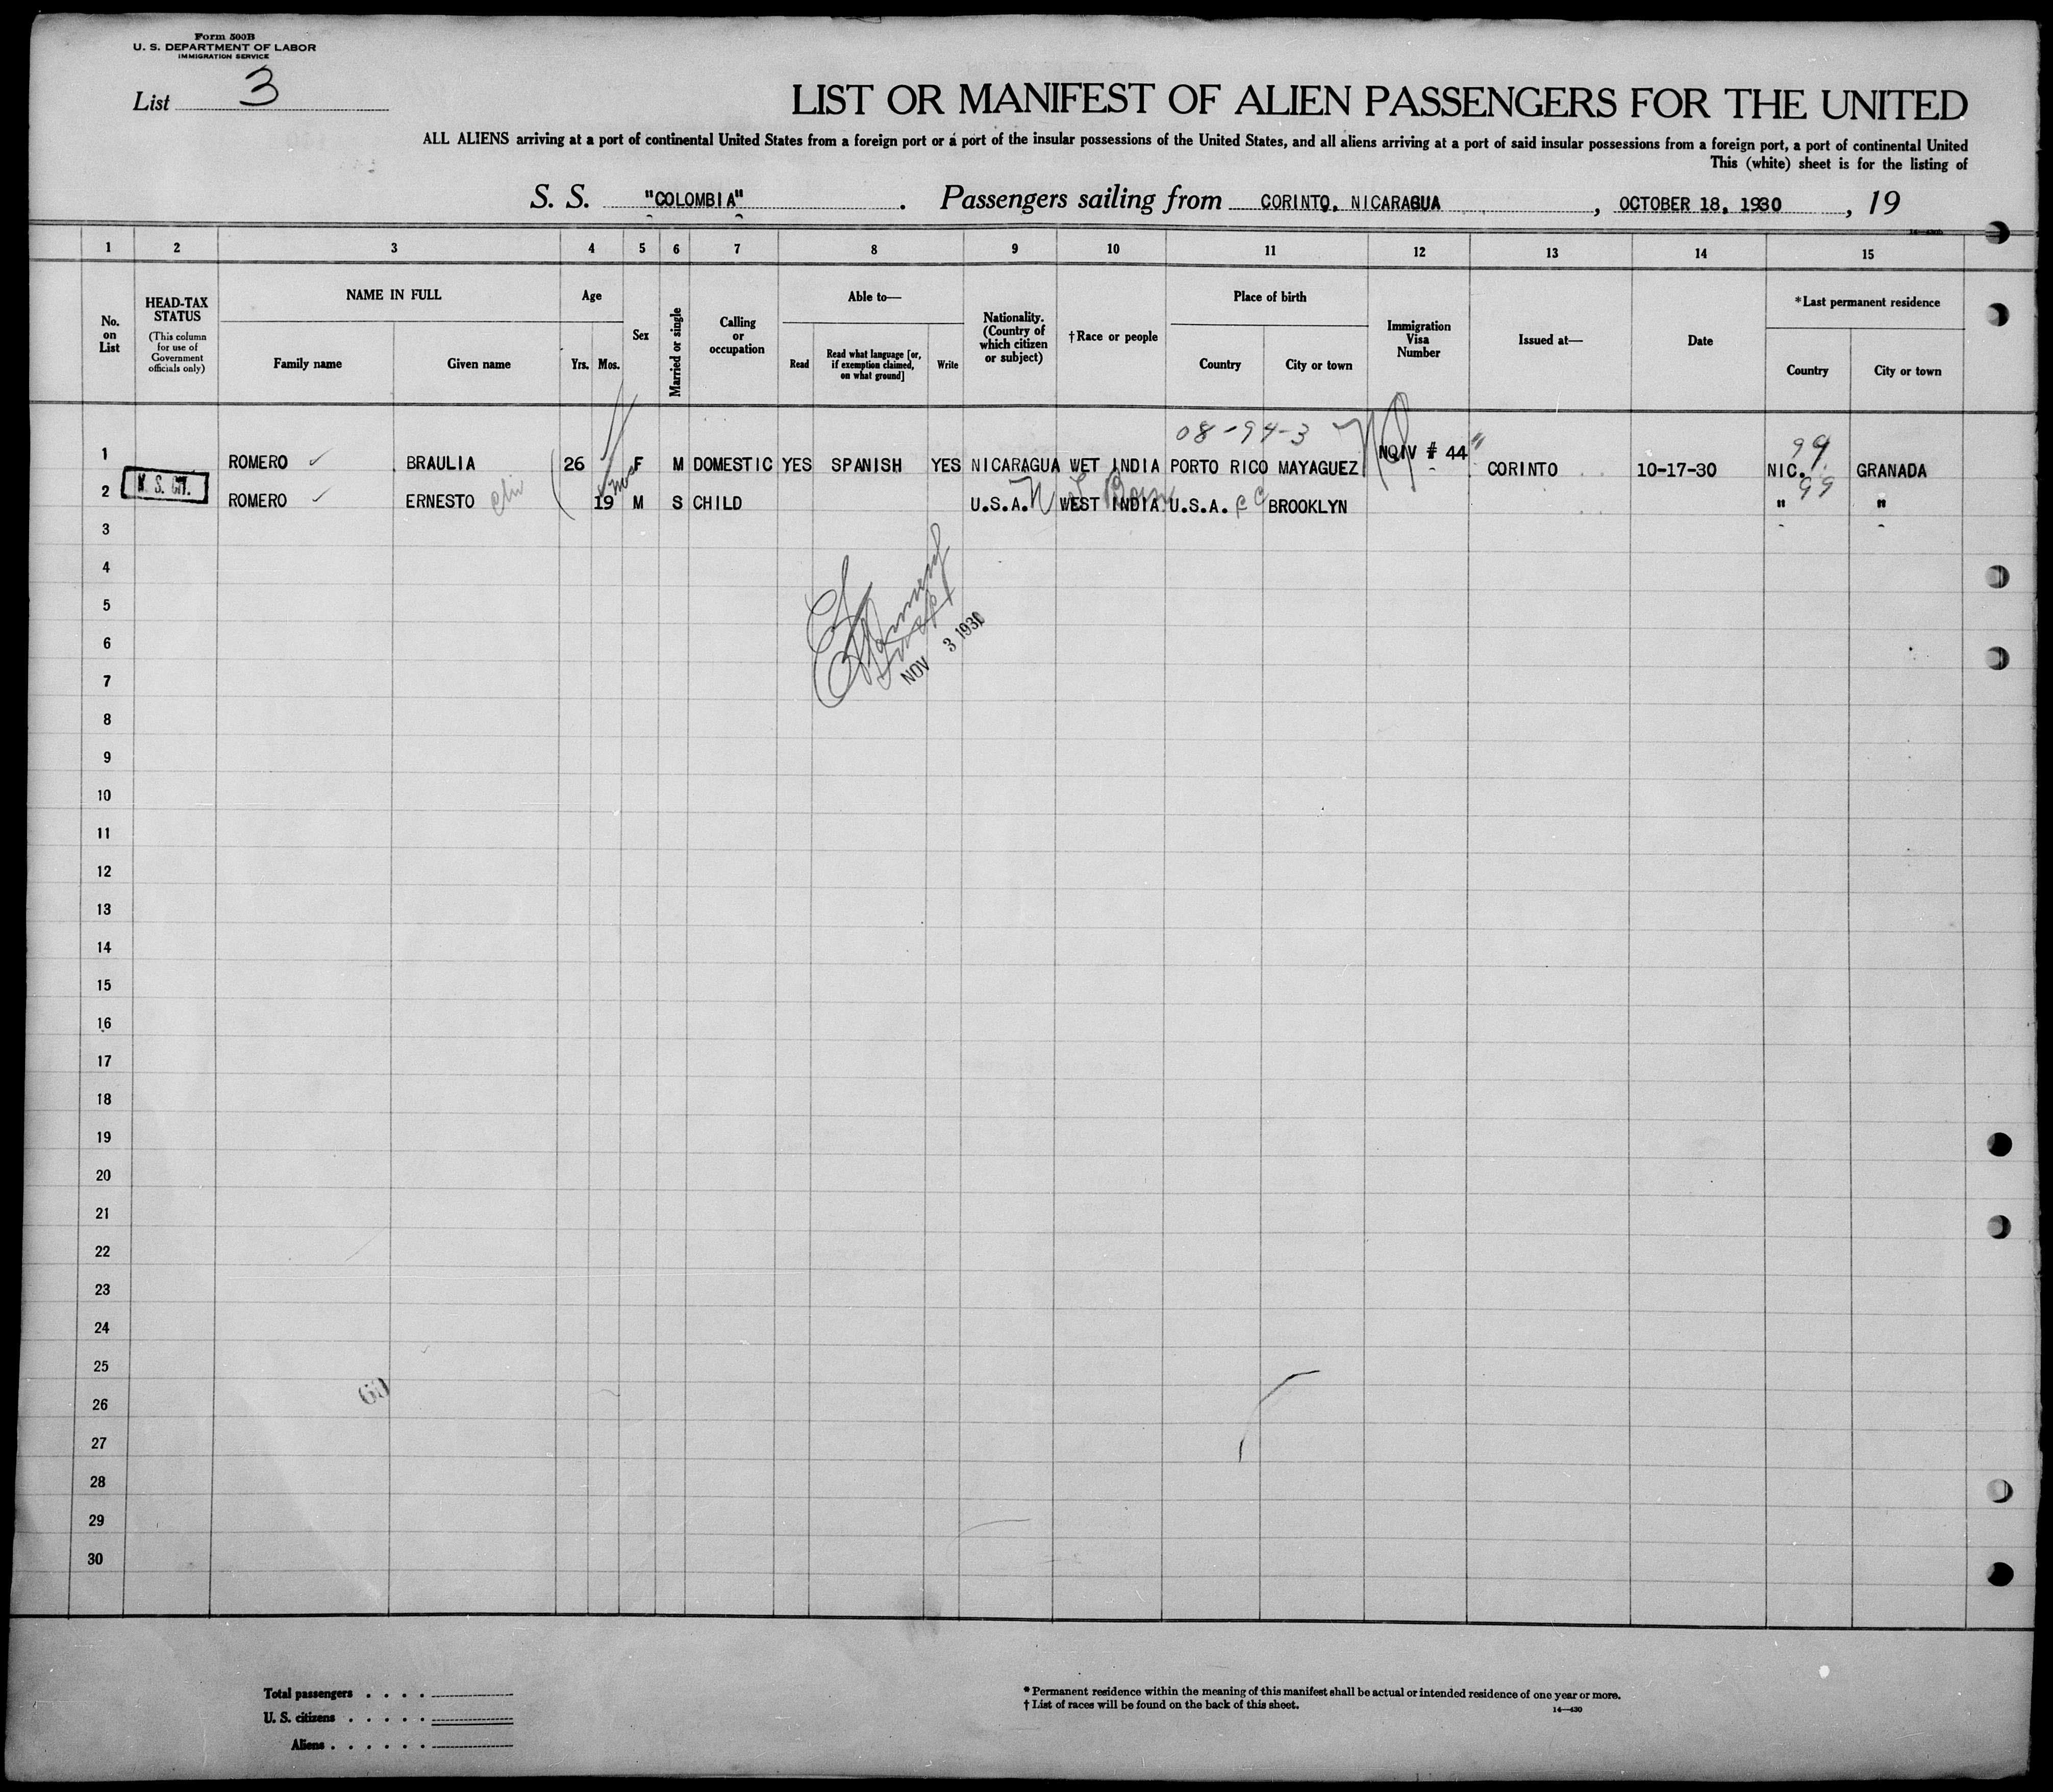 Form 500B
U. S. DEPARTMENT OF LABOR
IMMIGRATION SERVICE
List 3
LIST OR MANIFEST OF ALIEN PASSENGERS FOR THE UNITED
ALL ALIENS arriving at a port of continental United States from a foreign port or a port of the insular possessions of the United States, and all aliens arriving at a port of said insular possessions from a foreign port, a port of continental United
This (white) sheet is for the listing of
S. S. "COLOMBIA". Passengers sailing from CORINTO, NICARAGUA, OCTOBER 18, 1930, 19
1 2 3 4 5 6 7 8 9 10 11 12 13 14 15
No. on List
HEAD-TAX STATUS
(This column for use of Government officials only)
NAME IN FULL
Family name
Given name
Age
Yrs. Mos.
Sex
Married or single
Calling or occupation
Able to—
Read
Read what language [or, if exemption claimed, on what ground]
Write
Nationality. (Country of which citizen or subject)
†Race or people
Place of birth
Country
City or town
Immigration Visa Number
Issued at—
Date
*Last permanent residence
Country
City or town
08-94-3
99
1 ROMERO ✓ BRAULIA 26 F M DOMESTIC YES SPANISH YES NICARAGUA WET INDIA PORTO RICO MAYAGUEZ NQIV # 44 CORINTO 10-17-30 NIC. GRANADA
99
2 U. S. CIT. ROMERO ✓ ERNESTO 19 mos M S CHILD U.S.A. WEST INDIA U.S.A. BROOKLYN " "
3
4
5
6
NOV 3 1930
7
8
9
10
11
12
13
14
15
16
17
18
19
20
21
22
23
24
25
26
27
28
29
30
Total passengers . . . .
U. S. citizens . . . . .
Aliens . . . . . .
* Permanent residence within the meaning of this manifest shall be actual or intended residence of one year or more.
† List of races will be found on the back of this sheet.
14—430